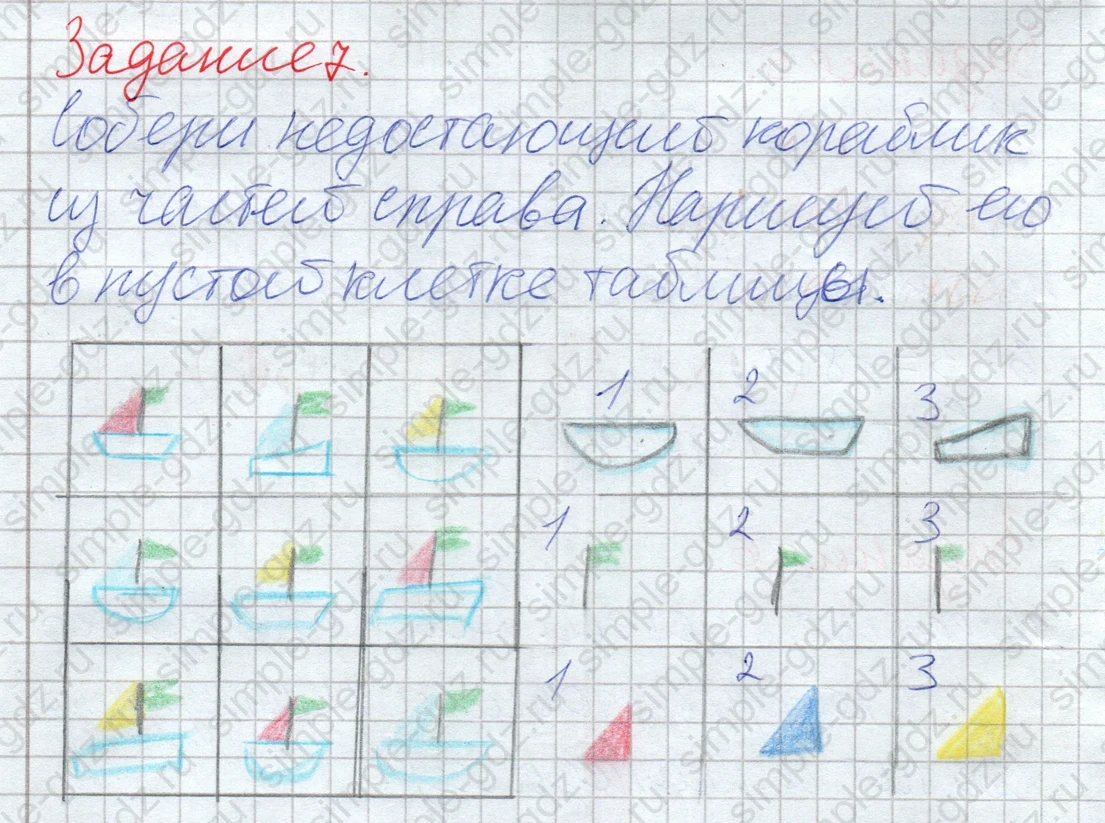 Задание 7.
Собери недостающий кораблик
из частей справа. Нарисуй его
в пустой клетке таблицы.
1 2 3
1 2 3
1 2 3
simple-gdz.ru